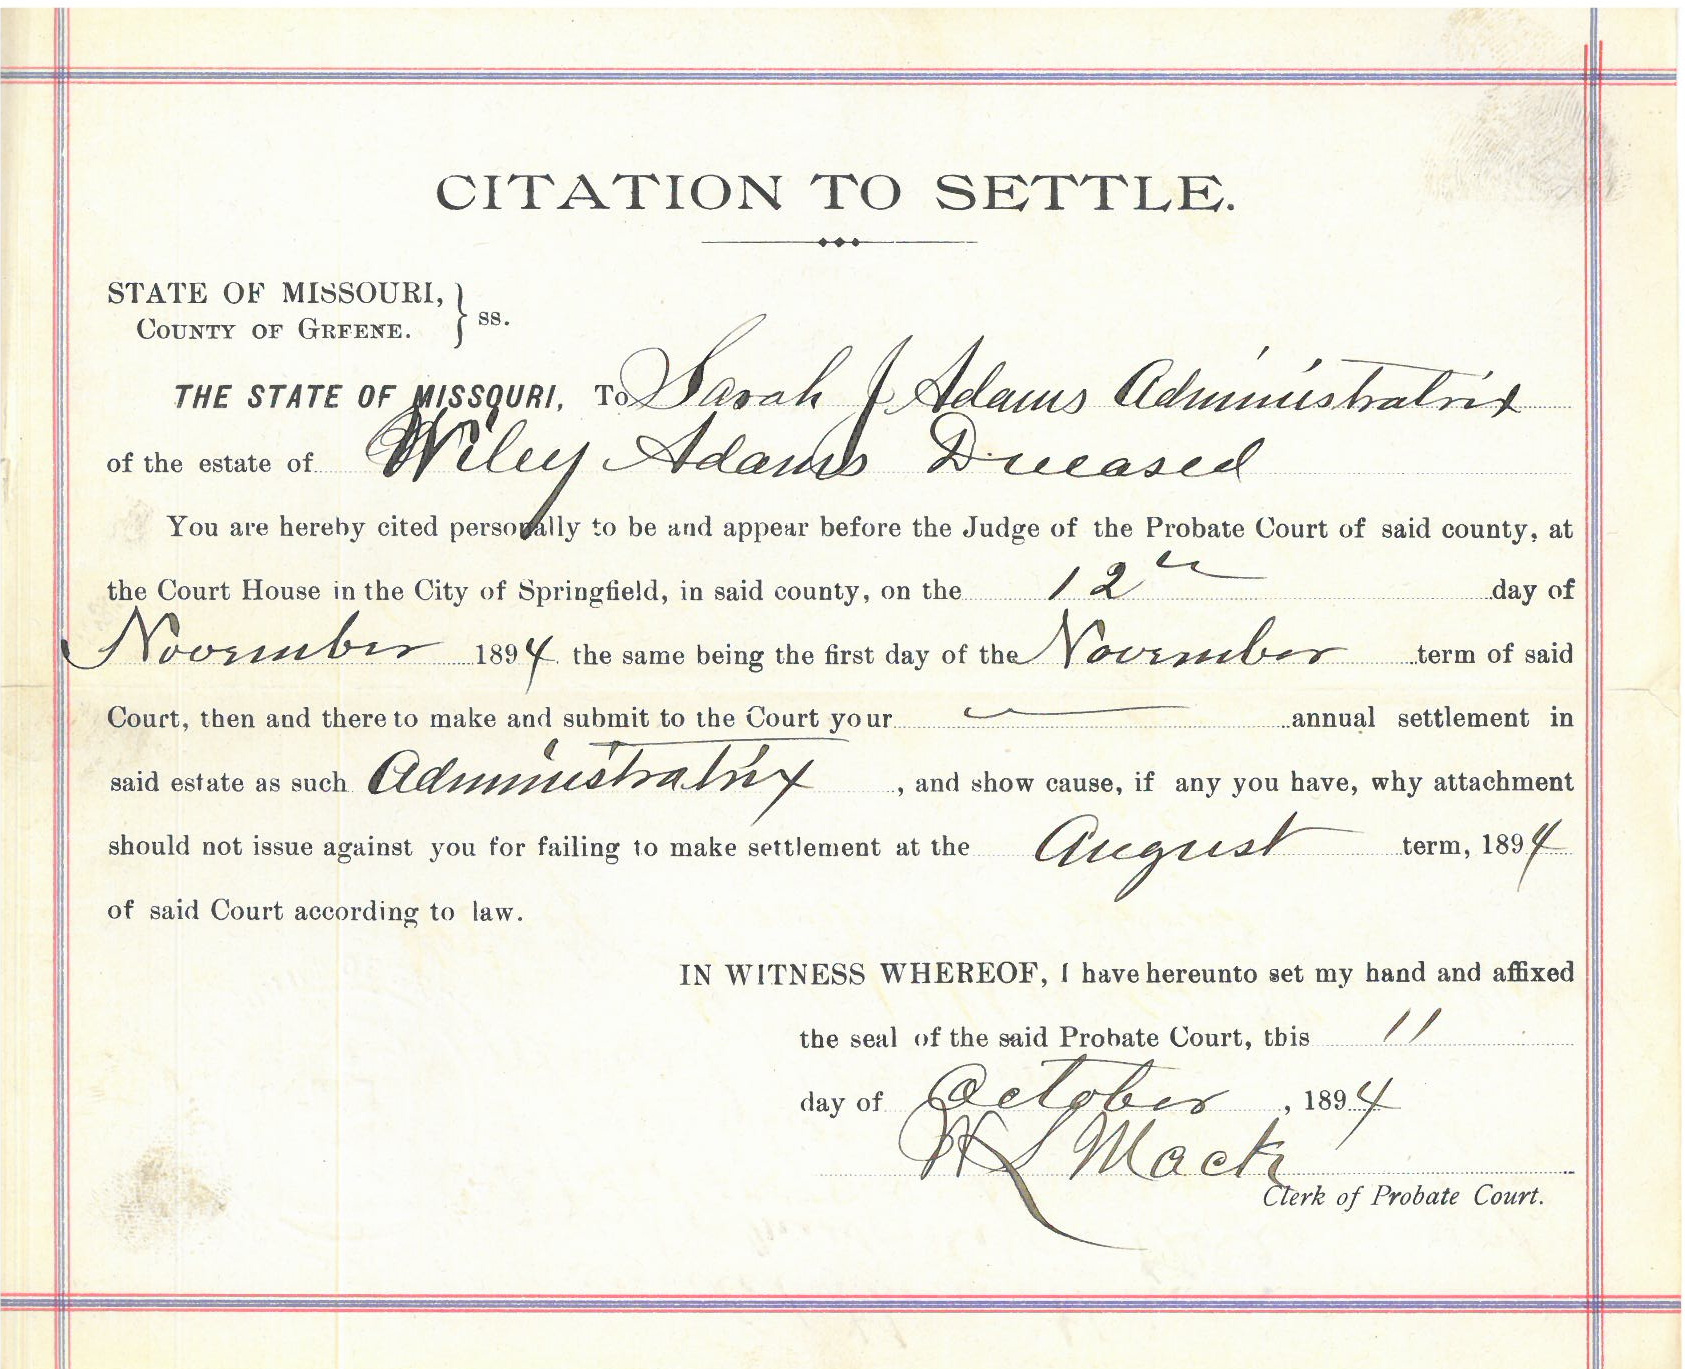 CITATION TO SETTLE.
STATE OF MISSOURI,
COUNTY OF GREENE. } ss.
THE STATE OF MISSOURI, To Sarah J Adams Administratrix
of the estate of Wiley Adams Deceased
You are hereby cited personally to be and appear before the Judge of the Probate Court of said county, at
the Court House in the City of Springfield, in said county, on the 12th day of
November 1894 the same being the first day of the November term of said
Court, then and there to make and submit to the Court your — annual settlement in
said estate as such Administratrix, and show cause, if any you have, why attachment
should not issue against you for failing to make settlement at the August term, 1894
of said Court according to law.
IN WITNESS WHEREOF, I have hereunto set my hand and affixed
the seal of the said Probate Court, this 11
day of October, 1894
W S Mack
Clerk of Probate Court.